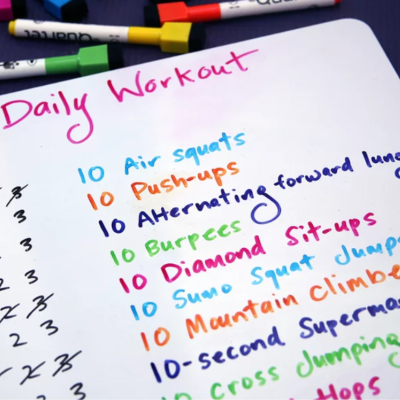 Quartet
Quartet
Daily Workout
10 Air squats
3 10 Push-ups
3 10 Alternating forward lung
3 10 Burpees
2 3 10 Diamond Sit-ups
2 3 10 Sumo Squat Jumps
2 3 10 Mountain Climbe
2 3 10-second Superma
2 3 10 Cross Jumping
Hops